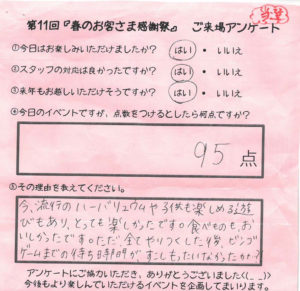 当選
第11回『春のお客さま感謝祭』 ご来場アンケート
①今日はお楽しみいただけましたか? はい ・ いいえ
②スタッフの対応は良かったですか? はい ・ いいえ
③来年もお越しいただけそうですか? はい ・ いいえ
④今日のイベントですが、点数をつけるとしたら何点ですか?
95 点
⑤その理由を教えてください。
今、流行のハーバリュウムや子供も楽しめる遊
びもあり、とっても楽しかったです。食べものも、お
いしかったです。ただ、全てやりつくした後、ビンゴ
ゲームまでの待ち時間がすこしもったいなかったか?
アンケートにご協力いただき、ありがとうございました<(_ _)>
今後もより楽しんでいただけるイベントを企画してまいります。